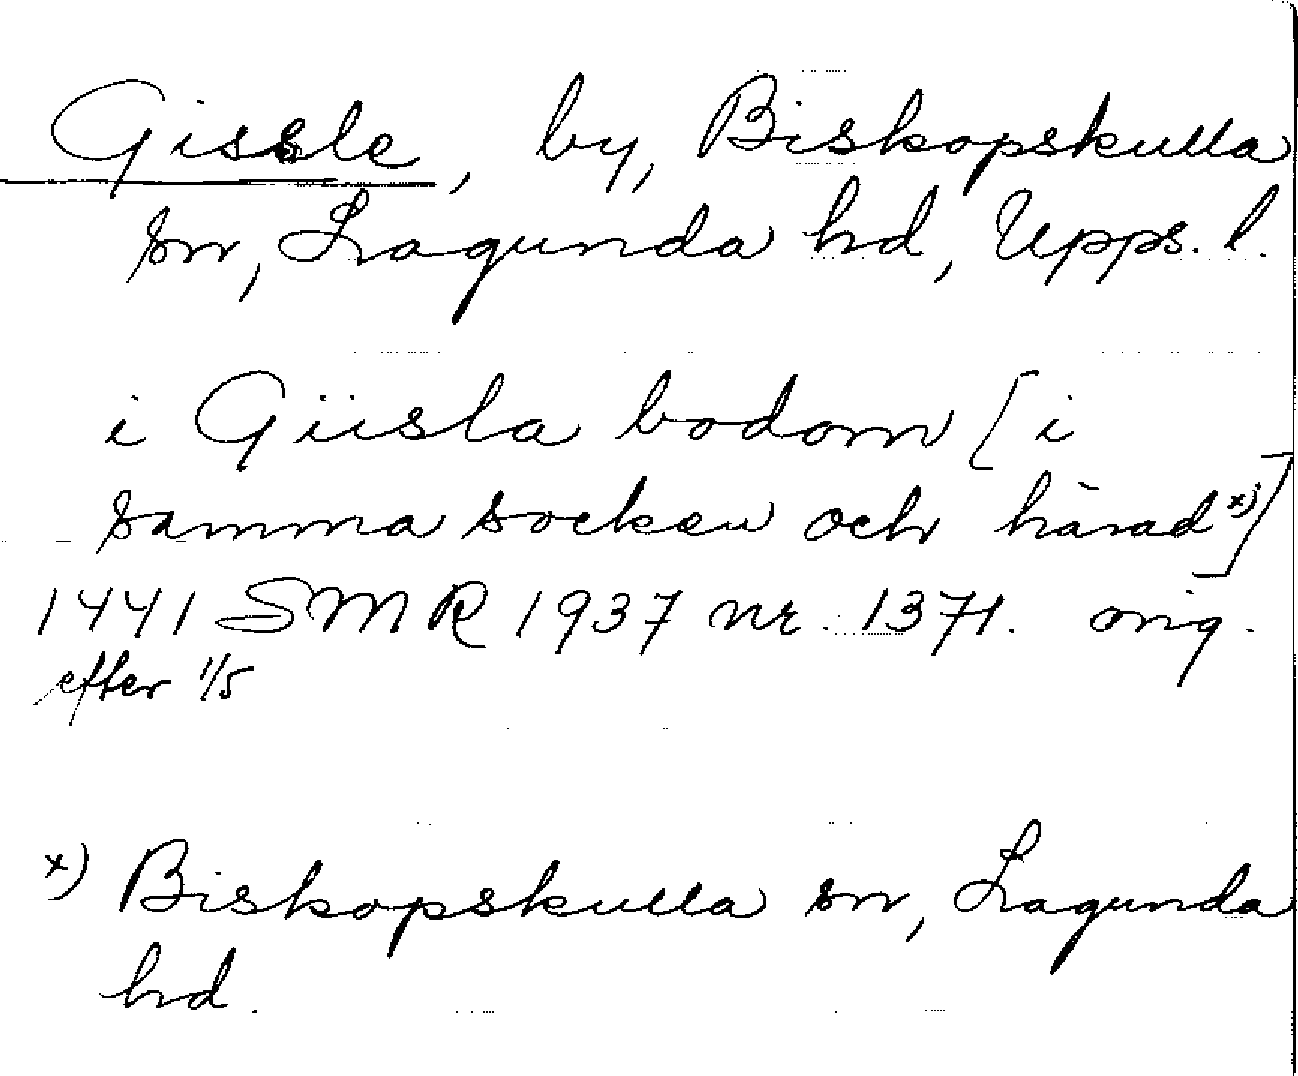 Gissle, by, Biskopskulla
sn, Lagunda hd, Upps. l.
i Giisla bodom [i
samma socken och härad x)]
1441 SMR 1937 nr. 1371. orig.
efter 1/5
x) Biskopskulla sn, Lagunda
hd.